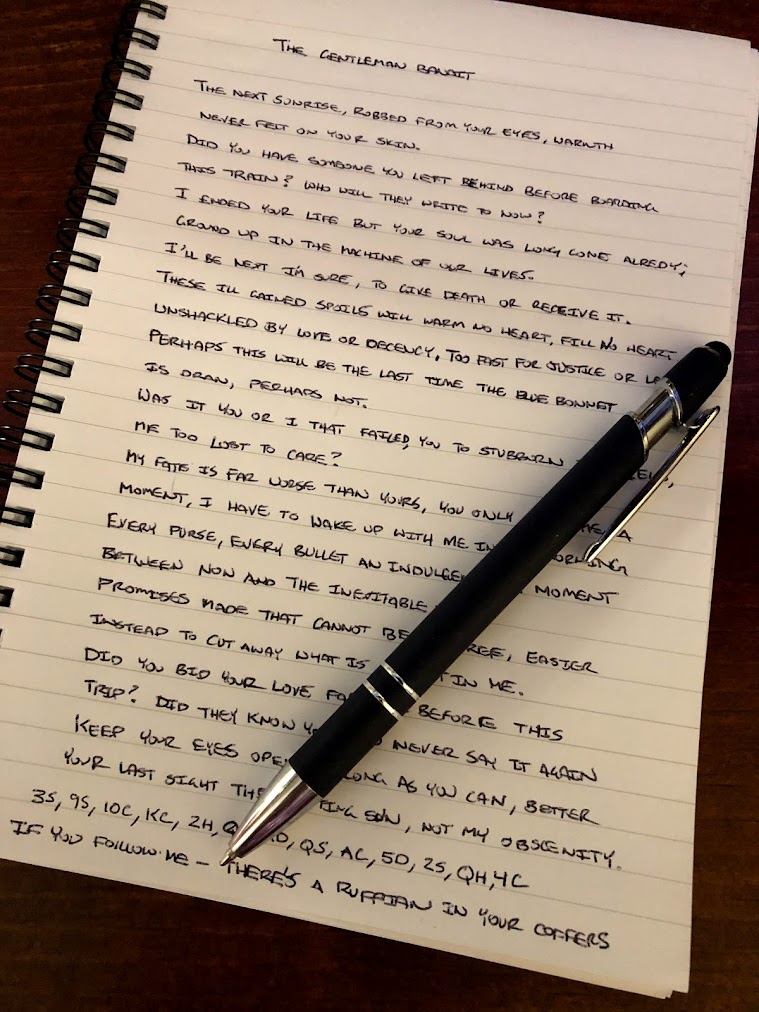 THE GENTLEMAN BANDIT
THE NEXT SUNRISE, ROBBED FROM YOUR EYES, WARMTH
NEVER FELT ON YOUR SKIN.
DID YOU HAVE SOMEONE YOU LEFT BEHIND BEFORE BOARDING
THIS TRAIN? WHO WILL THEY WRITE TO NOW?
I ENDED YOUR LIFE BUT YOUR SOUL WAS LONG GONE ALREDY;
GROUND UP IN THE MACHINE OF OUR LIVES.
I'LL BE NEXT I'M SURE, TO GIVE DEATH OR RECEIVE IT.
THESE ILL GAINED SPOILS WILL WARM NO HEART, FILL NO HEART
UNSHACKLED BY LOVE OR DECENCY, TOO FAST FOR JUSTICE OR
PERHAPS THIS WILL BE THE LAST TIME THE BLUE BONNET
IS DRAN, PERHAPS NOT.
WAS IT YOU OR I THAT FAILED, YOU TO STUBBURN
ME TOO LOST TO CARE?
MY FATE IS FAR WORSE THAN YOURS, YOU ONLY A
MOMENT, I HAVE TO WAKE UP WITH ME IN
EVERY PURSE, EVERY BULLET AN MOMENT
BETWEEN NOW AND THE INEVITABLE
PROMISES MADE THAT CANNOT BE EASIER
INSTEAD TO CUT AWAY WHAT IS IN ME.
DID YOU BID YOUR LOVE BEFORE THIS
TRIP? DID THEY KNOW NEVER SAY IT AGAIN
KEEP YOUR EYES AS YOU CAN, BETTER
YOUR LAST SIGHT SUN, NOT MY OBSCENITY.
3S, 9S, 10C, KC, 2H, QS, AC, 5D, 2S, QH, 4C
IF YOU FOLLOW ME – THERE'S A RUFFIAN IN YOUR COFFERS